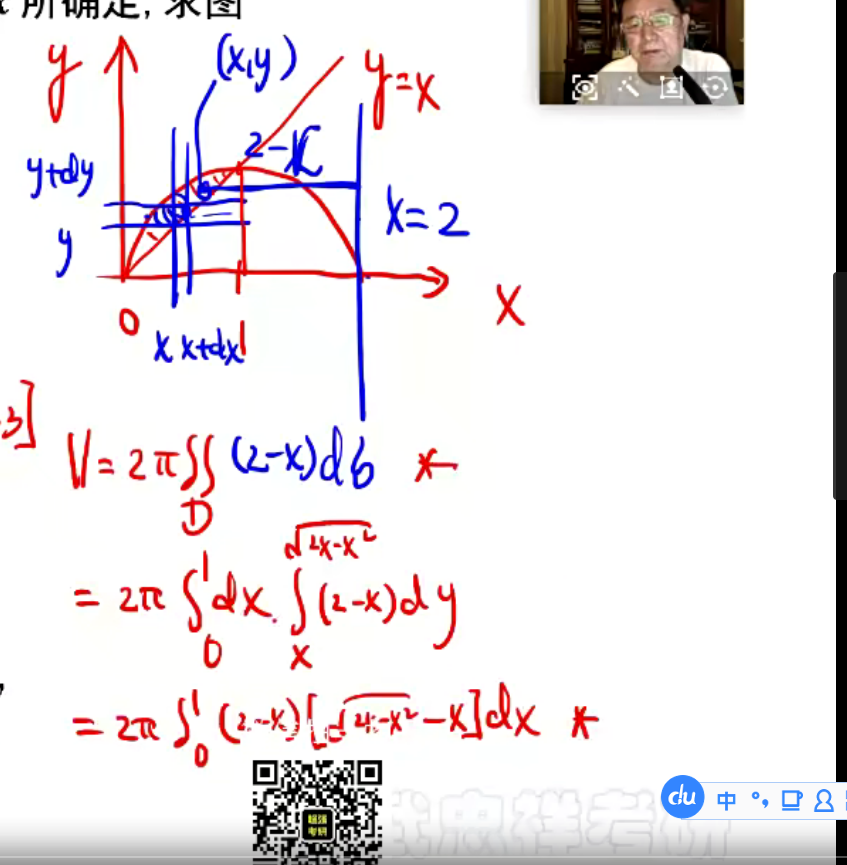 所确定, 求图
y
(x,y)
y=x
2-x
y+dy
y
x=2
0
x x+dx 1
x
3]
V=2π∬(2-x)dσ *
D
=2π∫₀¹dx·∫ₓ^√(2x-x²) (2-x)dy
=2π∫₀¹(2-x)[√(2x-x²)-x]dx *
武忠祥考研
du 中